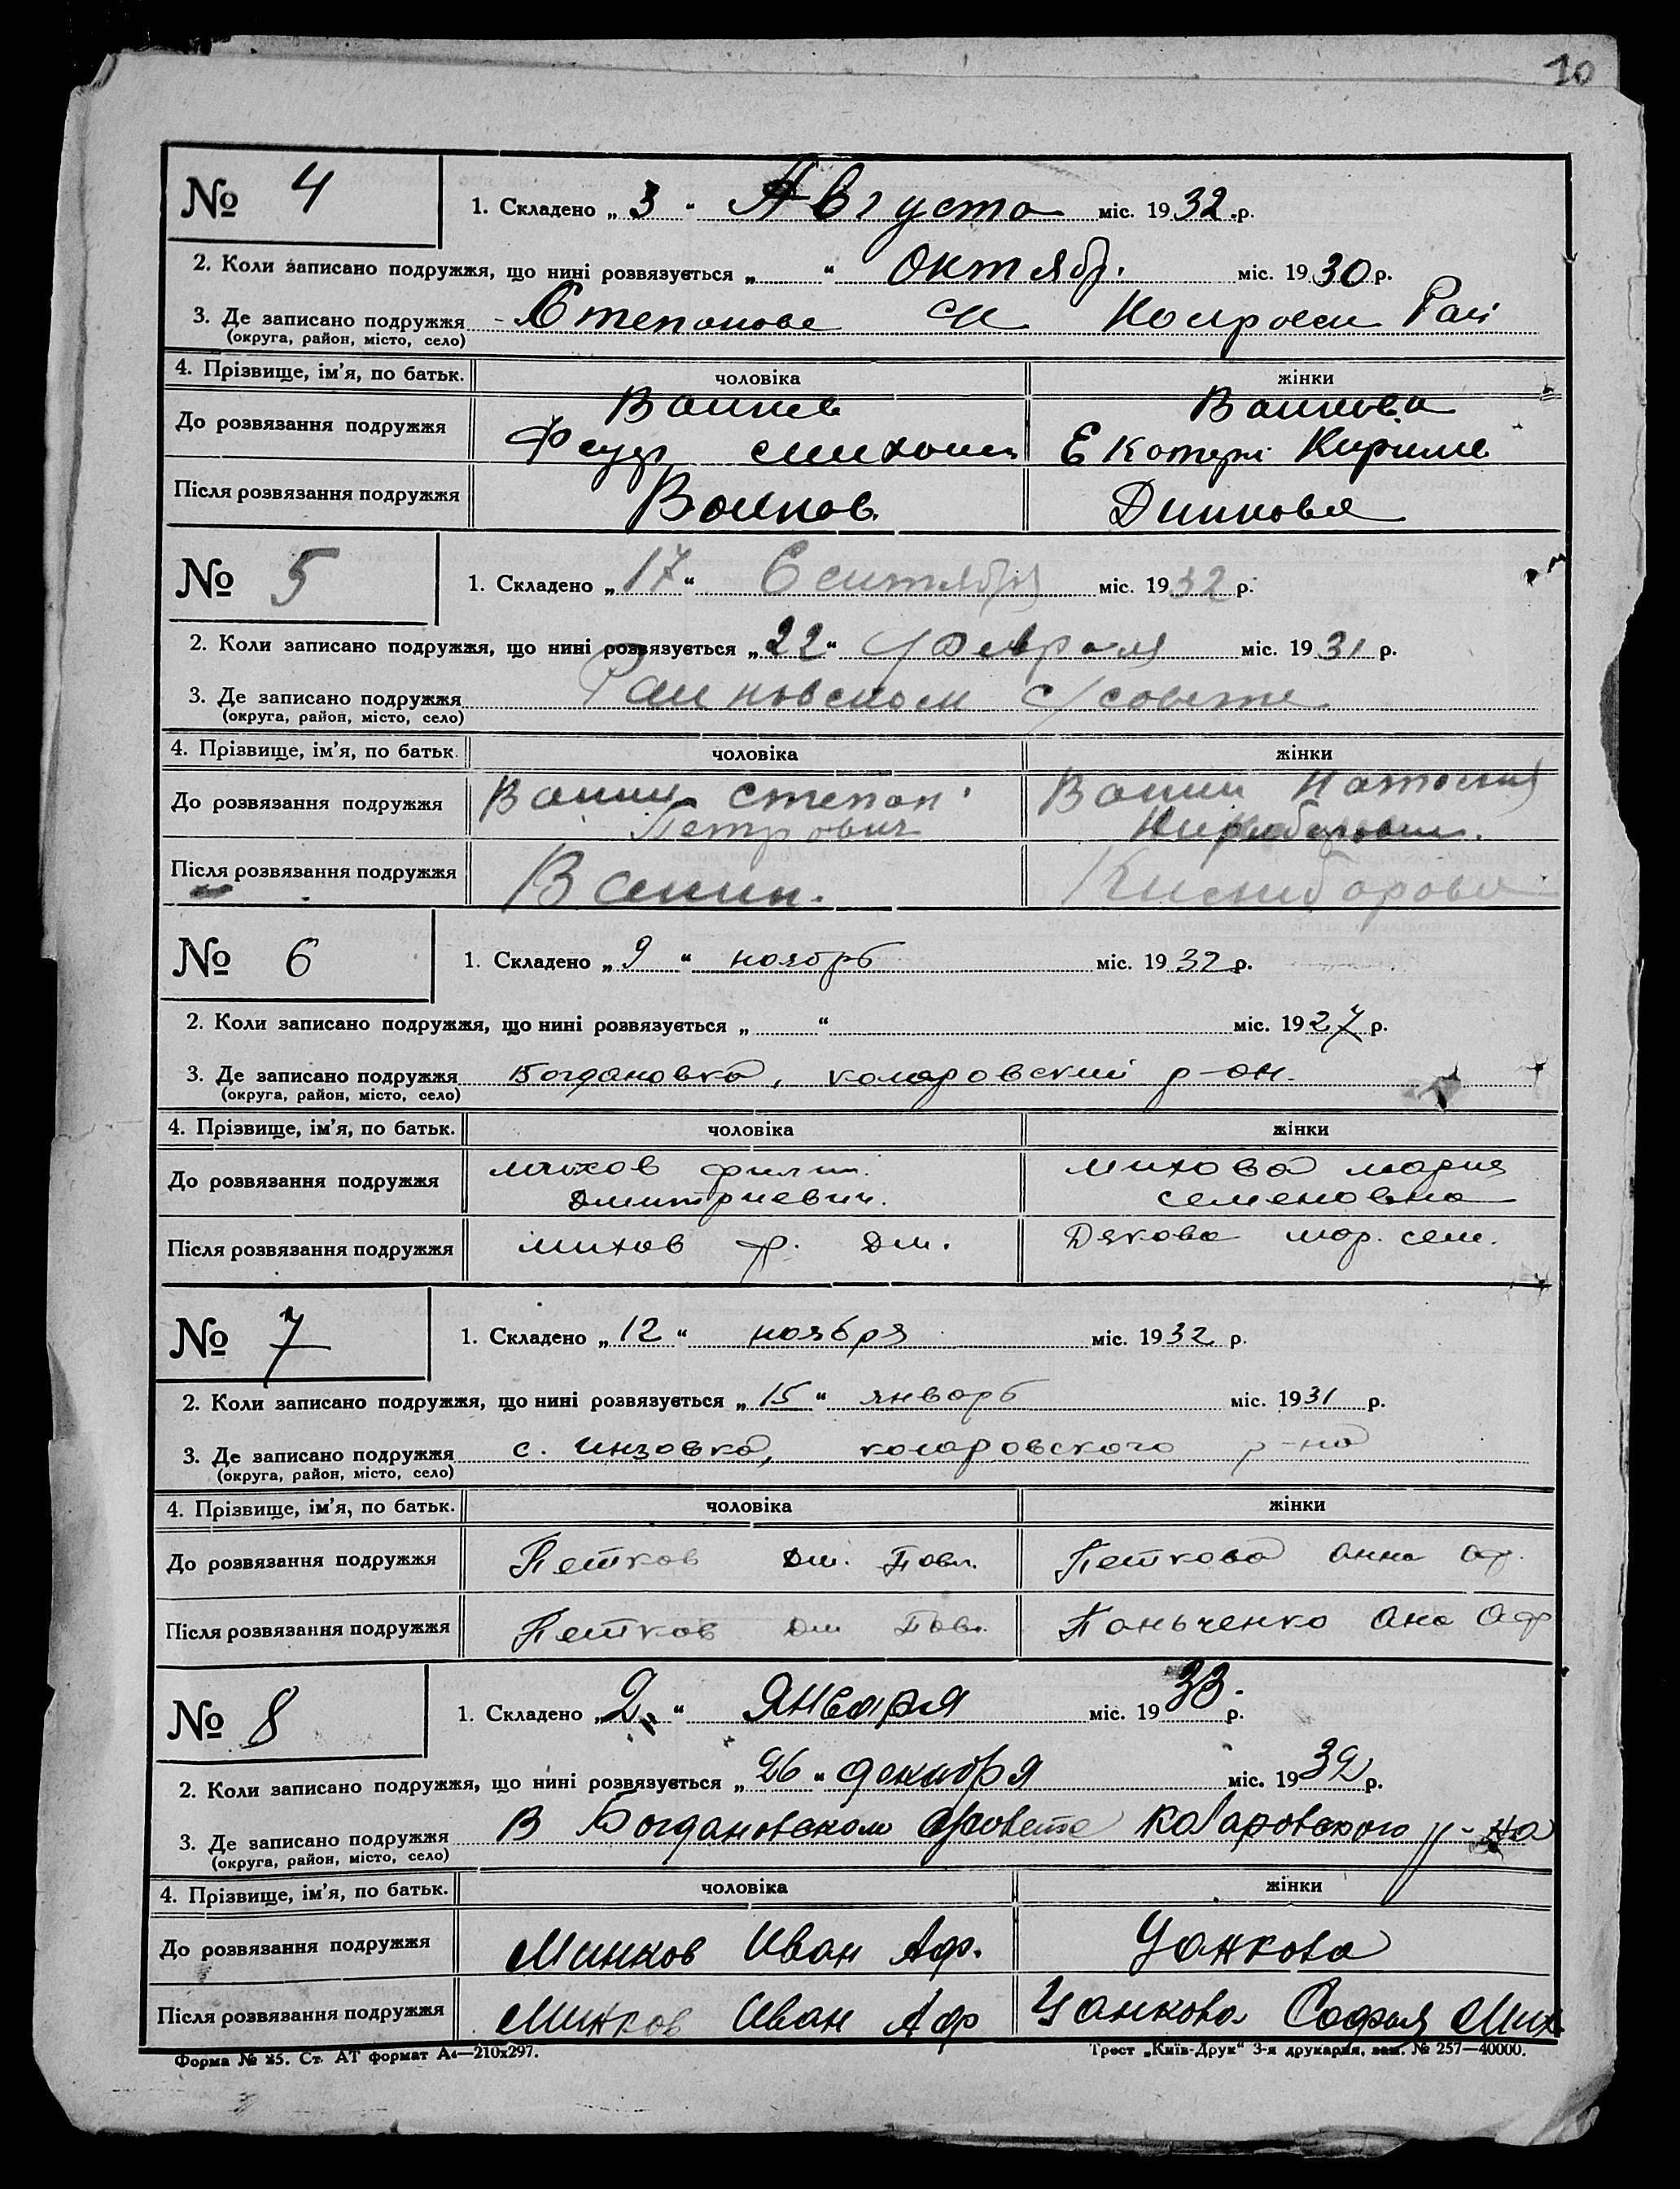 10
№ 4
1. Складено „ 3 “ Августа міс. 19 32 р.
2. Коли записано подружжя, що нині розвязується „ “ октябр. міс. 19 30 р.
3. Де записано подружжя Степанове
(округа, район, місто, село)
4. Прізвище, ім'я, по батьк. чоловіка жінки
До розвязання подружжя
Після розвязання подружжя Воинов.
№ 5
1. Складено „ 17 “ Сентября міс. 19 32 р.
2. Коли записано подружжя, що нині розвязується „ 22 “ Февраля міс. 19 31 р.
3. Де записано подружжя Раиновском с/совете
(округа, район, місто, село)
4. Прізвище, ім'я, по батьк. чоловіка жінки
До розвязання подружжя Степан
Петрович
Після розвязання подружжя Ванин.
№ 6
1. Складено „ 9 “ ноябрь міс. 19 32 р.
2. Коли записано подружжя, що нині розвязується „ “ міс. 19 27 р.
3. Де записано подружжя Богдановка, коларовский р-он.
(округа, район, місто, село)
4. Прізвище, ім'я, по батьк. чоловіка жінки
До розвязання подружжя михов филип. михова мария
дмитриевич. семеновна
Після розвязання подружжя михов ф. дм. Дякова мар. сем.
№ 7
1. Складено „ 12 “ ноября міс. 19 32 р.
2. Коли записано подружжя, що нині розвязується „ 15 “ январь міс. 19 31 р.
3. Де записано подружжя с. инзовка, коларовского р-на
(округа, район, місто, село)
4. Прізвище, ім'я, по батьк. чоловіка жінки
До розвязання подружжя Петков дм. Павл. Петкова анна аф.
Після розвязання подружжя Петков дм Павл. Паньченко Ана Аф
№ 8
1. Складено „ 2 “ Января міс. 19 33. р.
2. Коли записано подружжя, що нині розвязується „ 26 “ декабря міс. 19 32 р.
3. Де записано подружжя в Богдановском с/совете Коларовского р-на
(округа, район, місто, село)
4. Прізвище, ім'я, по батьк. чоловіка жінки
До розвязання подружжя Минков Иван Аф. Цанкова
Після розвязання подружжя Минков Иван Аф Цанкова София Мих.
Форма № 25. Ст. АТ формат А4—210х297. Трест „Київ-Друк“ 3-я друкарня, зам. № 257—40000.